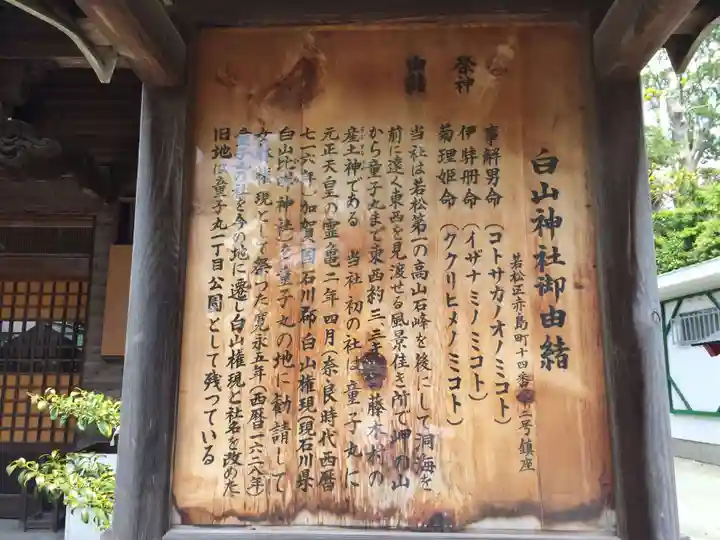 白山神社御由緒
若松区赤島町十四番 二号鎮座
祭神
事解男命(コトサカノオノミコト)
伊弉册命(イザナミノミコト)
菊理姫命(ククリヒメノミコト)
由緒
当社は若松第一の高山石峰を後にして洞海を
前に遠く東西を見渡せる風景佳き所で岬の山
から童子丸まで東西約三、三 藤木村の
産土神である 当社初の社は童子丸に
元正天皇の霊亀二年四月(奈良時代西暦
七一六年)加賀国石川郡白山権現(現石川県
白山比咩神社)を童子丸の地に勧請して
権現として祭った寛永五年(西暦一六二八年)
童子丸の社を今の地に遷し白山権現と社名を改めた
旧地は童子丸一丁目公園として残っている